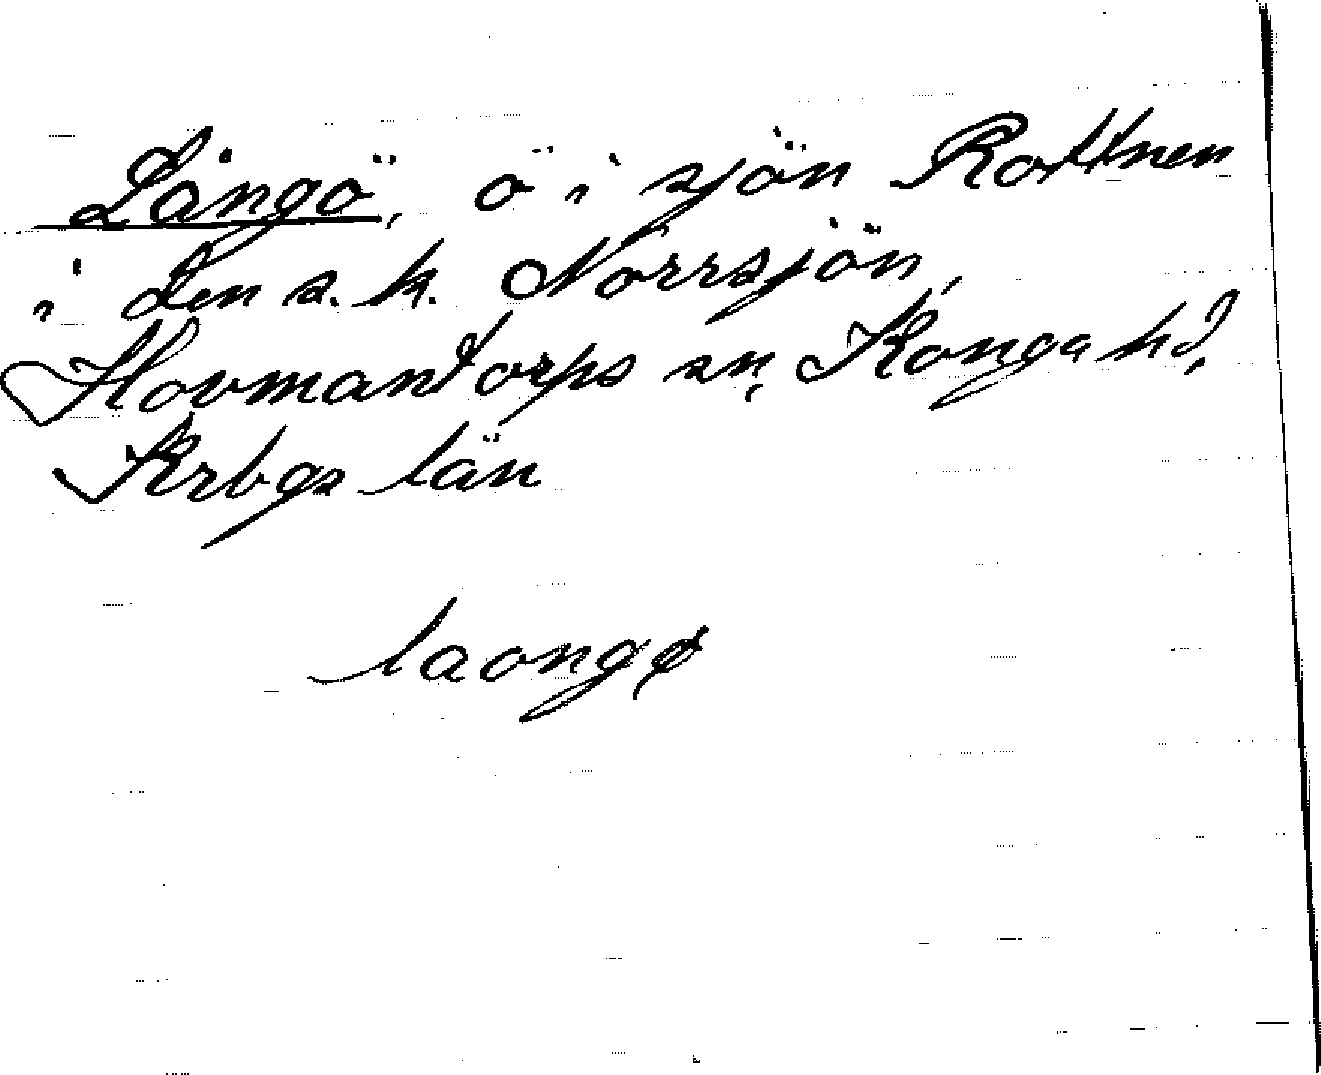 Långö, ö i sjön Rottnen
i den s.k. Norrsjön,
Hovmantorps sn, Konga hd,
Krbgs län
laongø